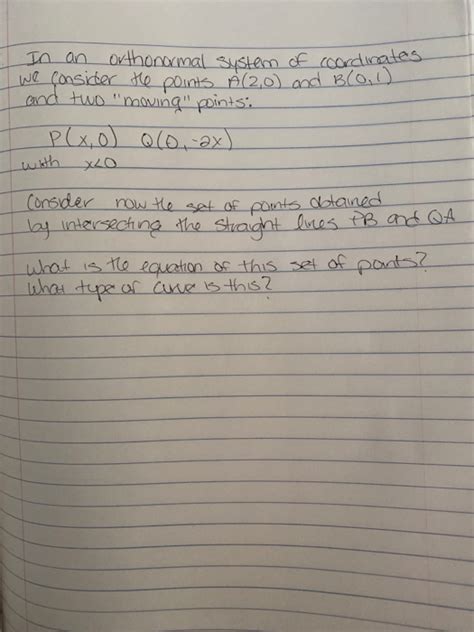 In an orthonormal system of coordinates
we consider the points A(2,0) and B(0,1)
and two "moving" points:
P(x,0) Q(0,-2x)
with x<0
Consider now the set of points obtained
by intersecting the straight lines PB and QA
What is the equation of this set of points?
What type of curve is this?